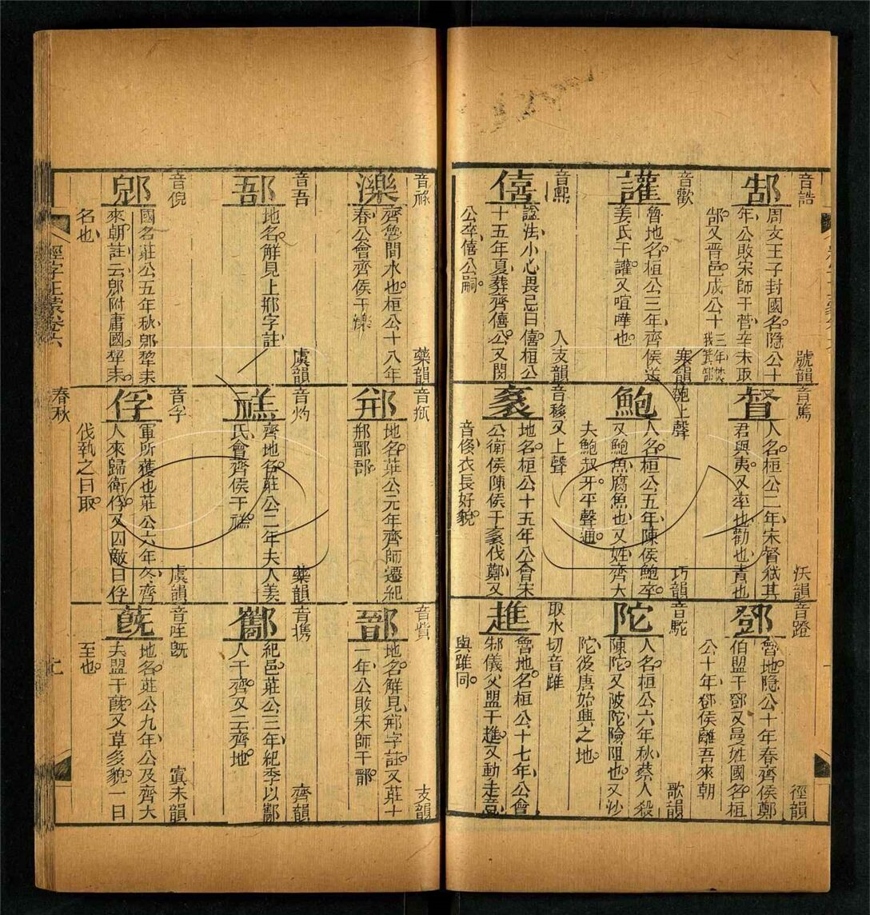 音誥 號韻
郜
周文王子封國名隐公十
年公敗宋師于菅辛未取
郜又晋邑成公十三年
音篤 沃韻
督
人名桓公二年宋督弑其
君與夷又率也勸也責也
音蹬 徑韻
鄧
魯地隐公十年春齊侯鄭
伯盟于鄧又曼姓國名桓
公十年鄧侯離吾來朝
音歡 寒韻
讙
魯地名桓公三年齊侯送
姜氏于讙又喧嘩也
鮑上聲 巧韻
鮑
人名桓公五年陳侯鮑卒
又鮑魚腐魚也又姓齊大
夫鮑叔牙平聲通
音駝 歌韻
陀
人名桓公六年秋蔡人殺
陳陀又陂陀險阻也又沙
陀後唐始興之地
音熙 入支韻
僖
諡法小心畏忌曰僖桓公
十五年夏葬齊僖公又閔
公卒僖公嗣
又上聲
袲
地名桓公十五年公會宋
公衛侯陳侯于袲伐鄭又
音侈衣長好貌
取水切音踓
趡
魯地名桓公十七年公會
邾儀父盟于趡又動走意
與踓同
音祿 藥韻
濼
齊魯間水也桓公十八年
春公會齊侯于濼
音瓶
郱
地名莊公元年齊師遷紀
郱鄑郚
音貲 支韻
鄑
地名解見郱字註又莊十
一年公敗宋師于鄑
音吾 虞韻
郚
地名解見上郱字註
音灼 藥韻
禚
齊地名莊公二年夫人姜
氏會齊侯于禚
音携 齊韻
酅
紀邑莊公三年紀季以酅
人于齊又云齊地
音倪
郳
國名莊公五年秋郳犂来
來朝註云郳附庸國犂来
名也
音孚 虞韻
俘
軍所獲也莊公六年冬齊
人來歸衛俘又囚敵曰俘
伐執之曰取
寘未韻
蔇
地名莊公九年公及齊大
夫盟于蔇又草多貌一曰
至也
經字正蒙卷六
春秋